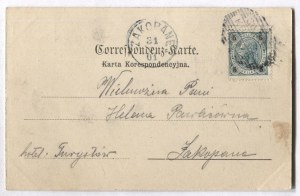 ZAKOPANE
31
01
Correspondenz-Karte.
Karta Korespondencyjna.
Wielmożna Pani
Helena Pawlikówna
hotel Turystów
Zakopane